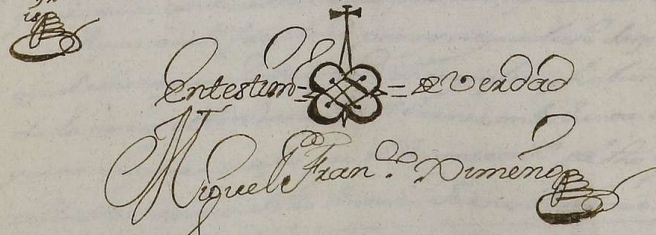 En testim.o = de Verdad
Miguel Fran.co Ximeno